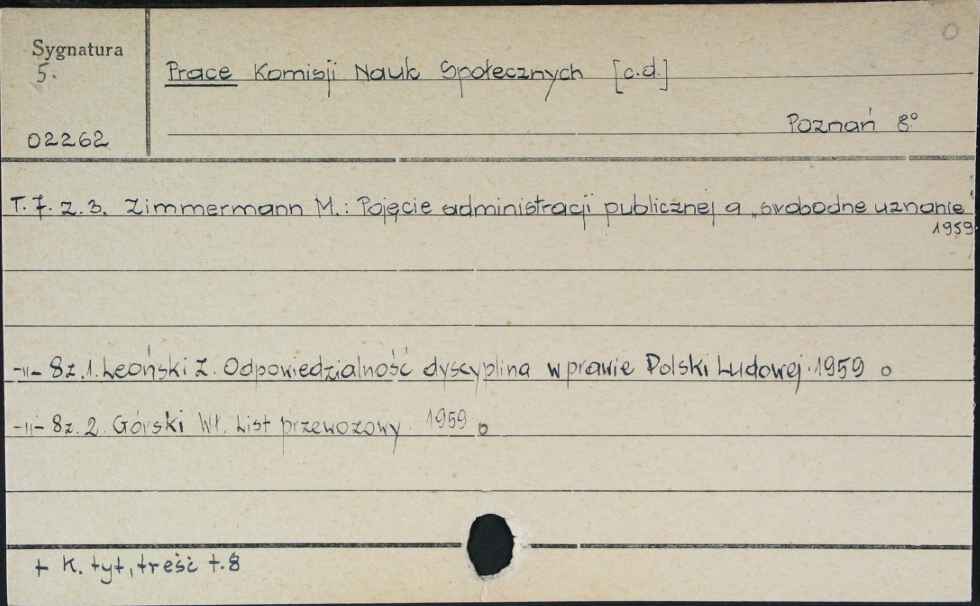 Sygnatura
5.
Prace Komisji Nauk Społecznych [c.d.]
02262
Poznań 8°
T. 7. z. 3. Zimmermann M.: Pojęcie administracji publicznej a „swobodne uznanie
1959
-"- 8 z. 1. Leoński Z. Odpowiedzialność dyscyplina w prawie Polski Ludowej. 1959 o
-"- 8 z. 2. Górski Wł. List przewozowy. 1959 o
+ K. tyt, treść t. 8